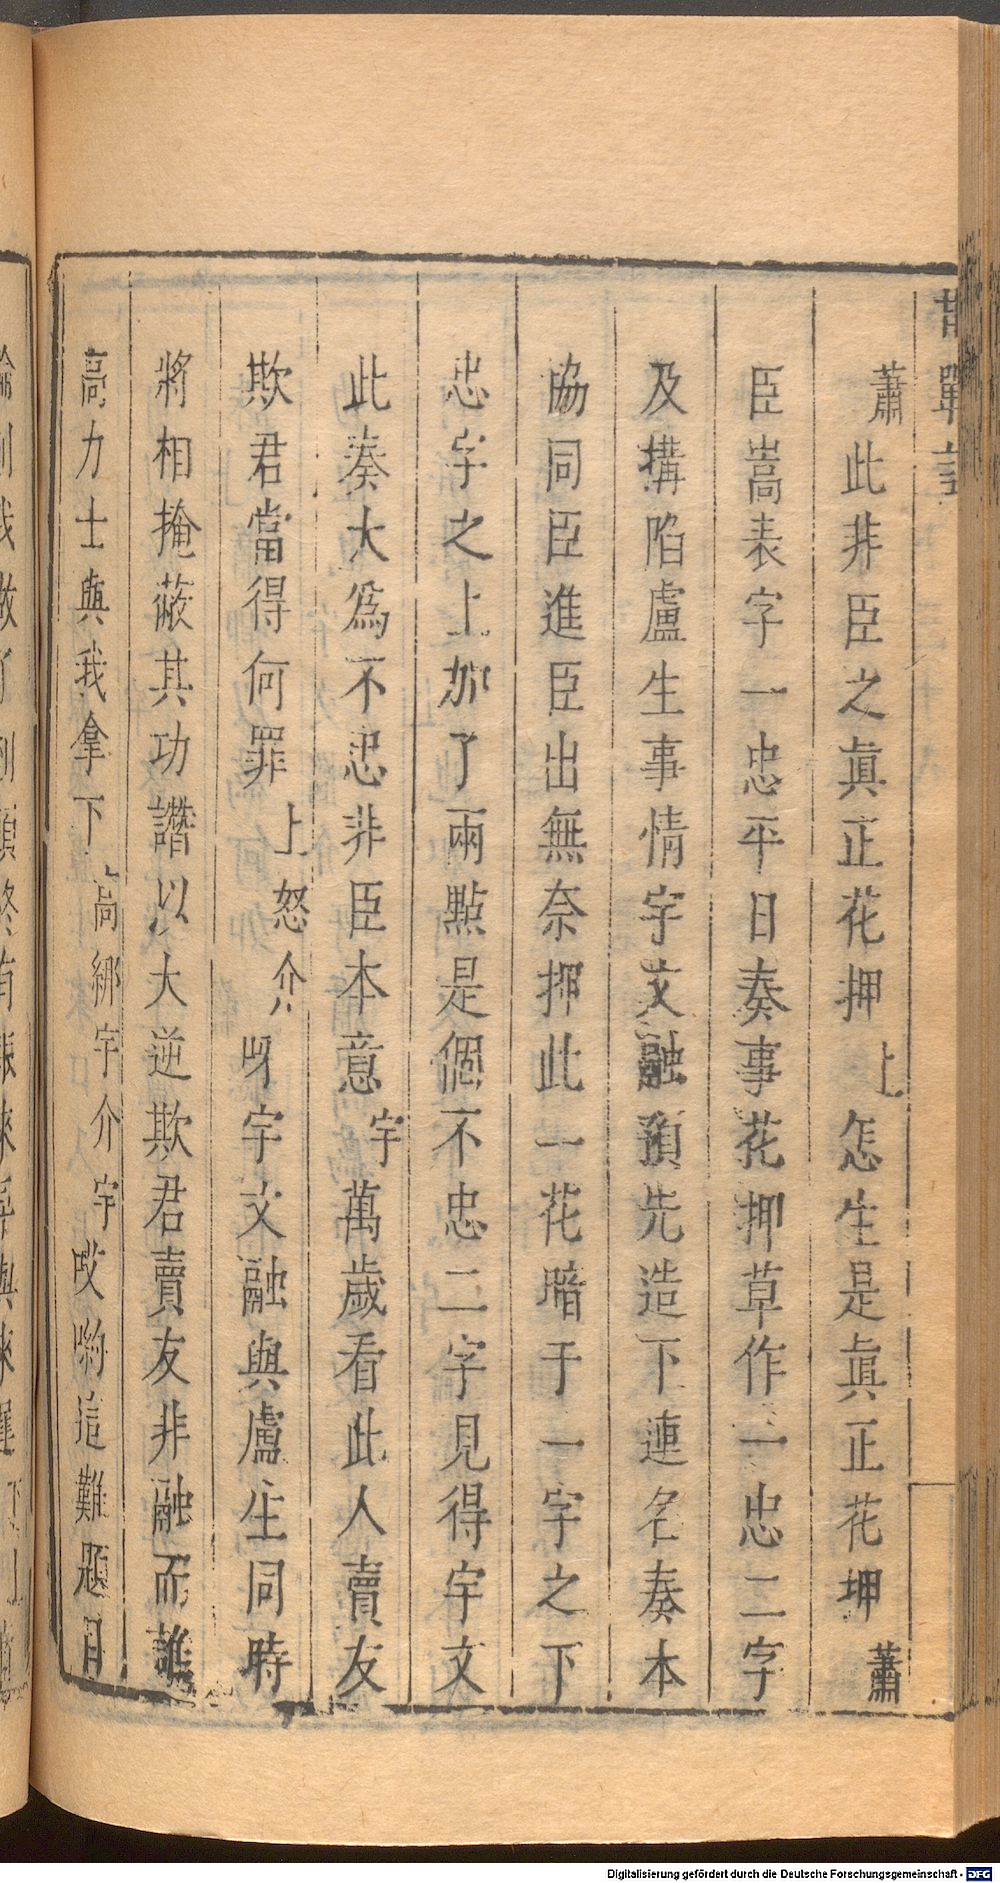 蕭此非臣之眞正花押上怎生是眞正花押蕭
臣嵩表字一忠平日奏事花押草作一忠二字
及搆陷盧生事情宇文融預先造下連名奏本
協同臣進臣出無奈押此一花暗于一字之下
忠字之上加了兩點是個不忠二字見得宇文
此奏大爲不忠非臣本意宇萬歲看此人賣友
欺君當得何罪上怒介呀宇文融與盧生同時
將相掩蔽其功讚以大逆欺君賣友非融而誰
高力士與我拿下高綁宇介宇哎喲這難題目
Digitalisierung gefördert durch die Deutsche Forschungsgemeinschaft - DFG